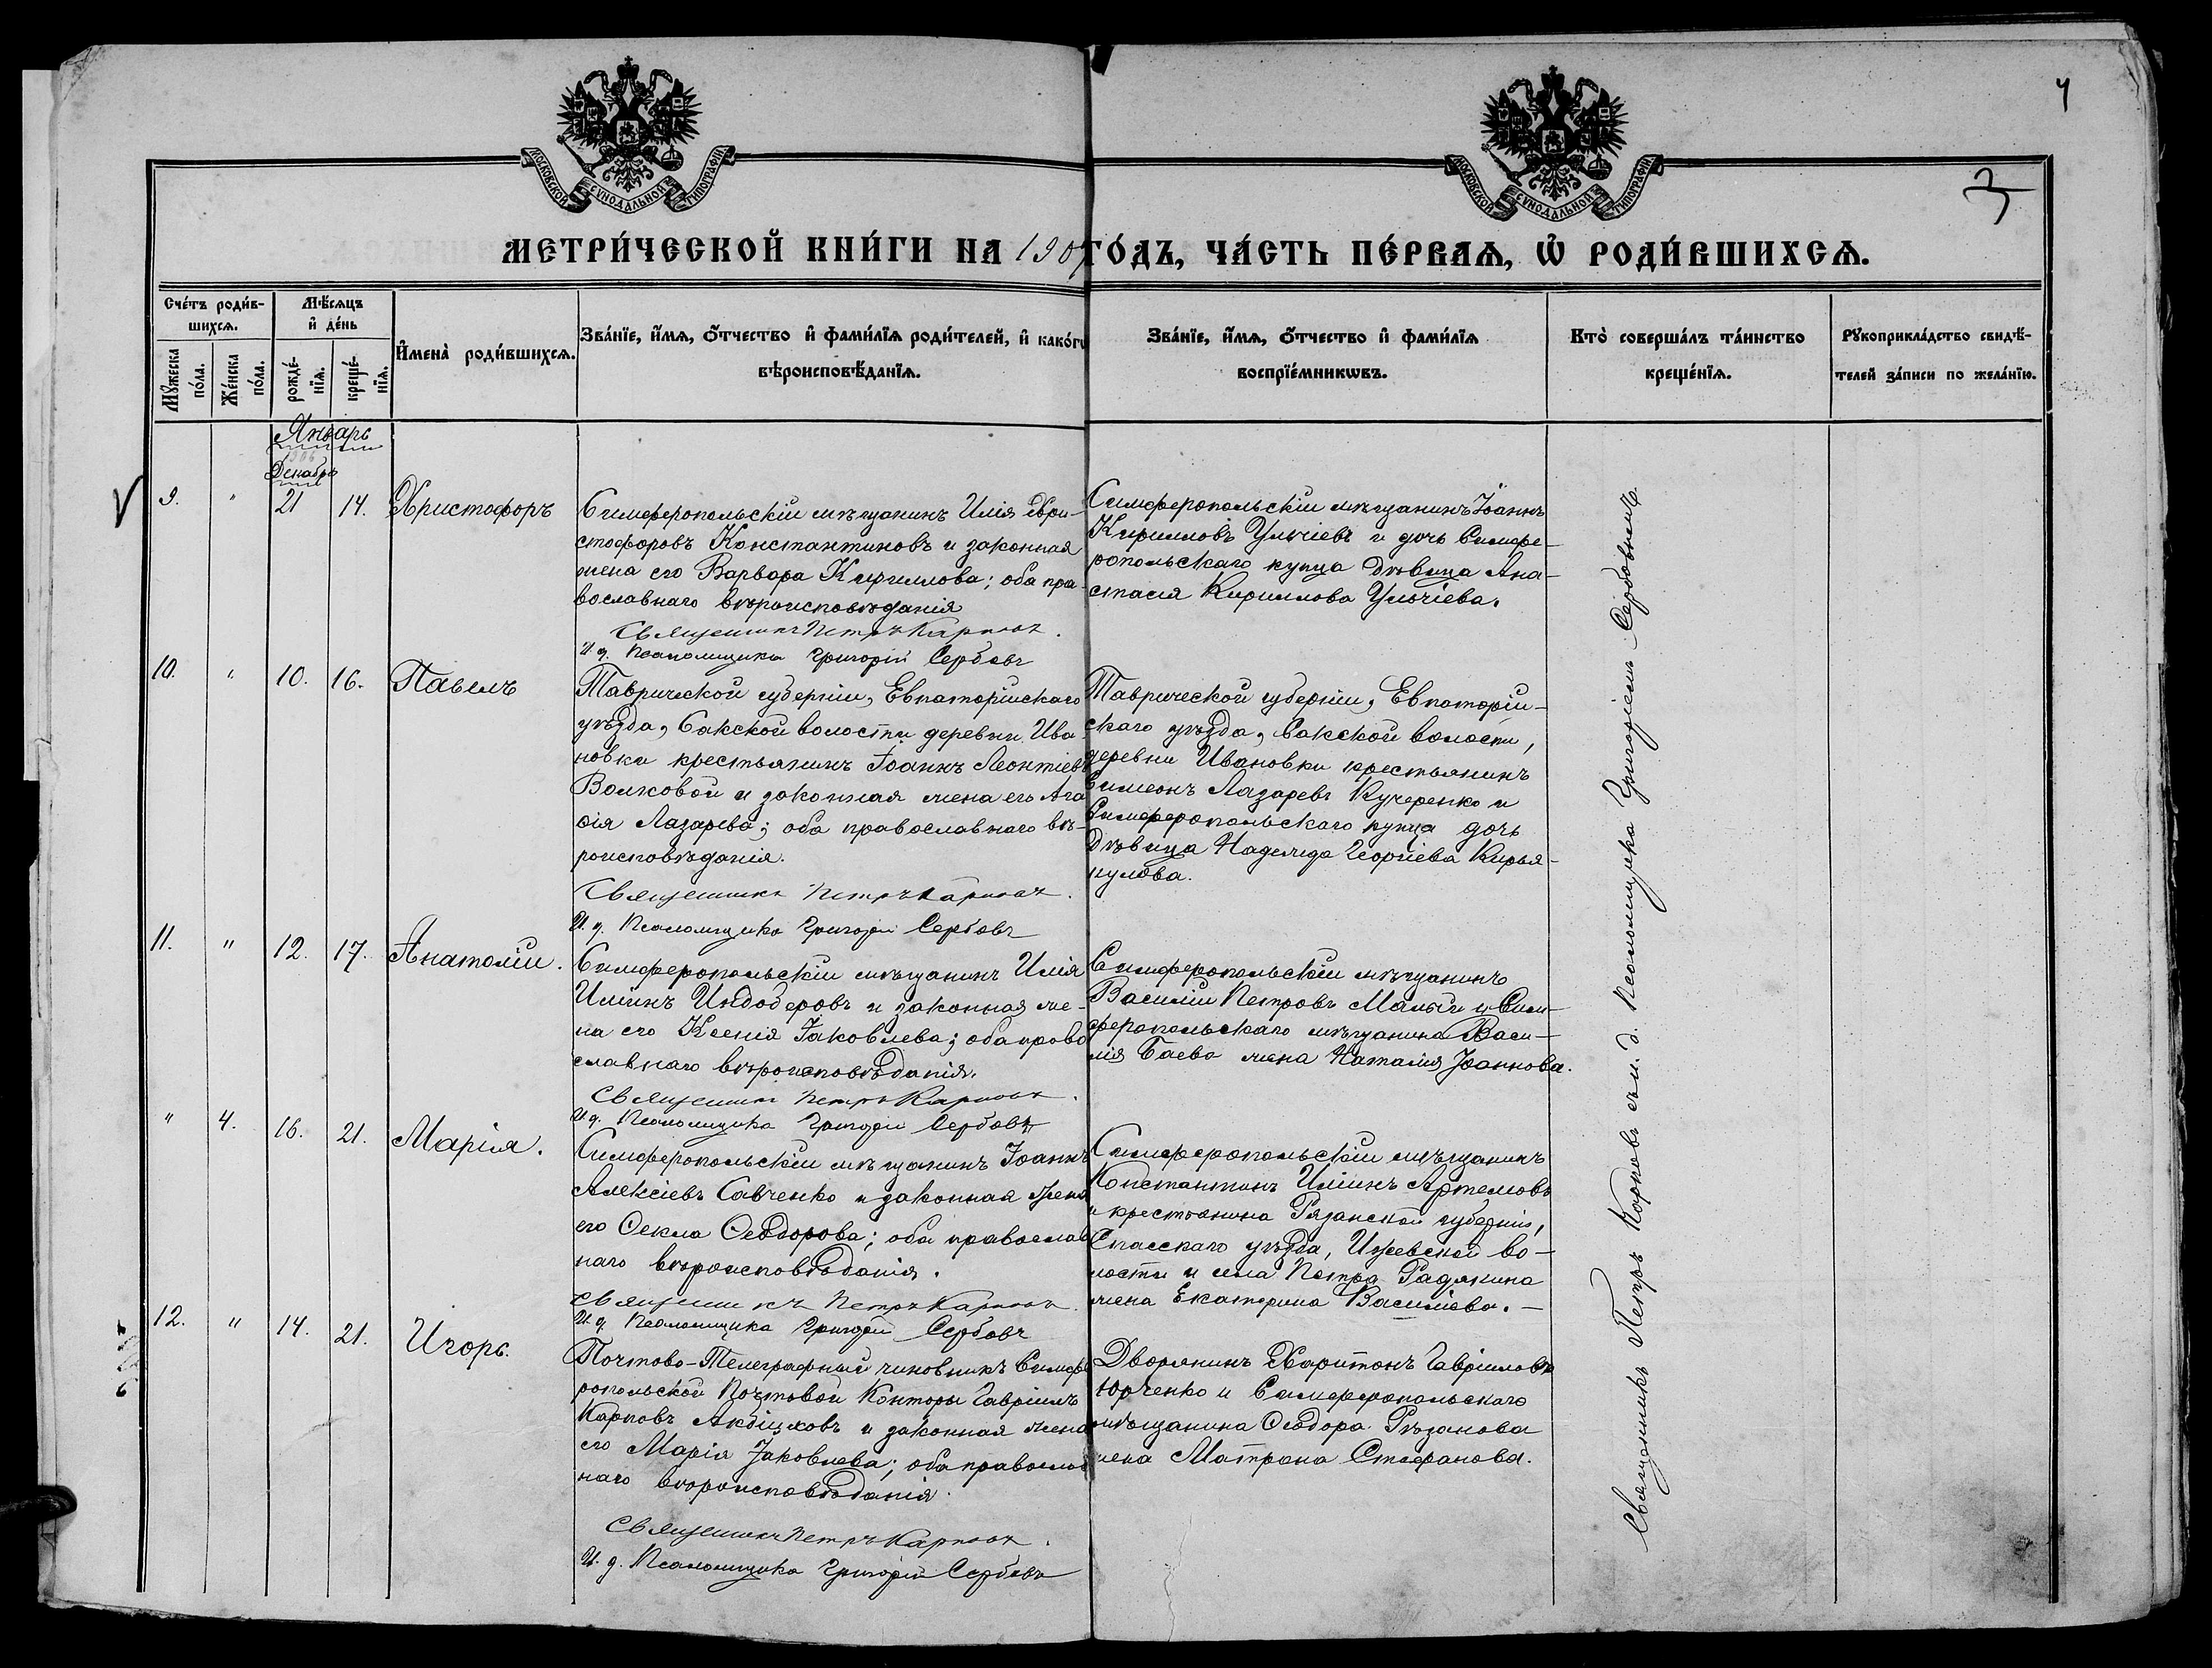 4
3
МОСКОВСКОЙ СѴНОДАЛЬНОЙ ТИПОГРАФІИ
МОСКОВСКОЙ СѴНОДАЛЬНОЙ ТИПОГРАФІИ
МЕТРИ́ЧЕСКОЙ КНИ́ГИ НА 1907 ГО́ДЪ, ЧА́СТЬ ПЕ́РВАѦ, Ѽ РОДИ́ВШИХСѦ.
Сче́тъ роди́в-
шихсѧ.
Мꙋ́жеска по́ла.
Же́нска по́ла.
Мѣ́сѧцъ
и҆ де́нь
рожде́-
нїѧ.
креще́-
нїѧ.
И҆мена̀ роди́вшихсѧ.
Зва́нїе, и҆́мѧ, ѻ҆́тчество и҆ фами́лїѧ роди́телей, и҆ како́гѡ
вѣроисповѣ́данїѧ.
Зва́нїе, и҆́мѧ, ѻ҆́тчество и҆ фами́лїѧ
воспрїе́мникѡвъ.
Кто̀ соверша́лъ та́инство
креще́нїѧ.
Рꙋкоприкла́дство свидѣ́-
телей за́писи по жела́нїю.
Январь
Декабрь
9. " 21 14. Христофоръ
Симферопольскій мѣщанинъ Илія Хри-
стофоровъ Константиновъ и законная
жена его Варвара Кириллова; оба пра-
вославнаго вѣроисповѣданія
Священникъ Петръ Карповъ.
И. д. Псаломщика Григорій Сербовъ
Симферопольскій мѣщанинъ Іоаннъ
Кирилловъ Ульчіевъ и дочь Симфе-
ропольскаго купца дѣвица Ана-
стасія Кириллова Ульчіева.
10. " 10. 16. Павелъ
Таврической губерніи, Евпаторійскаго
уѣзда, Сакской волости деревни Ива-
новки крестьянинъ Іоаннъ Леонтіевъ
Волковой и законная жена его Ага
ѳія Лазарева; оба православнаго вѣ-
роисповѣданія.
Священникъ Петръ Карповъ.
И. д. Псаломщика Григорій Сербовъ
Таврической губерніи, Евпаторій-
скаго уѣзда, Сакской волости,
деревни Ивановки крестьянинъ
Симеонъ Лазаревъ Кучеренко и
Симферопольскаго купца дочь
дѣвица Надежда Георгіева Кирья-
кулова.
11. " 12. 17. Анатолій.
Симферопольскій мѣщанинъ Илія
Иліинъ Индодеровъ и законная же-
на его Ксенія Іаковлева; оба право
славнаго вѣроисповѣданія.
Священникъ Петръ Карповъ.
И. д. Псаломщика Григорій Сербовъ
Симферопольскій мѣщанинъ
Василій Петровъ и Сим-
феропольскаго мѣщанина Васи-
лія Баева жена Наталія Іоаннова.
" 4. 16. 21. Марія.
Симферопольскій мѣщанинъ Іоаннъ
Алексіевъ Савченко и законная жена
его Ѳекла Ѳеодорова; оба православ
наго вѣроисповѣданія.
Священникъ Петръ Карповъ.
И. д. Псаломщика Григорій Сербовъ
Симферопольскій мѣщанинъ
Константинъ Иліинъ Артемовъ
и крестьянина Рязанской губерніи,
Спасскаго уѣзда, Ижевской во-
лости и села Петра Радякина
жена Екатерина Василіева. —
12. " 14. 21. Игорь.
Почтово-Телеграфный чиновникъ Симфе
ропольской Почтовой Конторы Гавріилъ
Карповъ и законная жена
его Марія Іаковлева; оба православ
наго вѣроисповѣданія.
Священникъ Петръ Карповъ.
И. д. Псаломщика Григорій Сербовъ
Дворянинъ Харитонъ Гавріиловъ
Юрченко и Симферопольскаго
мѣщанина Ѳеодора Рѣзанова
жена Матрона Стефанова.
Священникъ Петръ Карповъ съ и. д. Псаломщика Григоріемъ Сербовымъ.